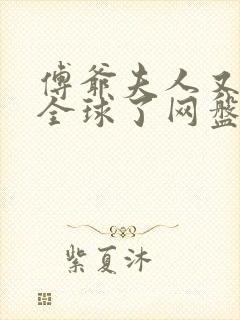 傅爷夫人又
全球了网盘
紫夏沐